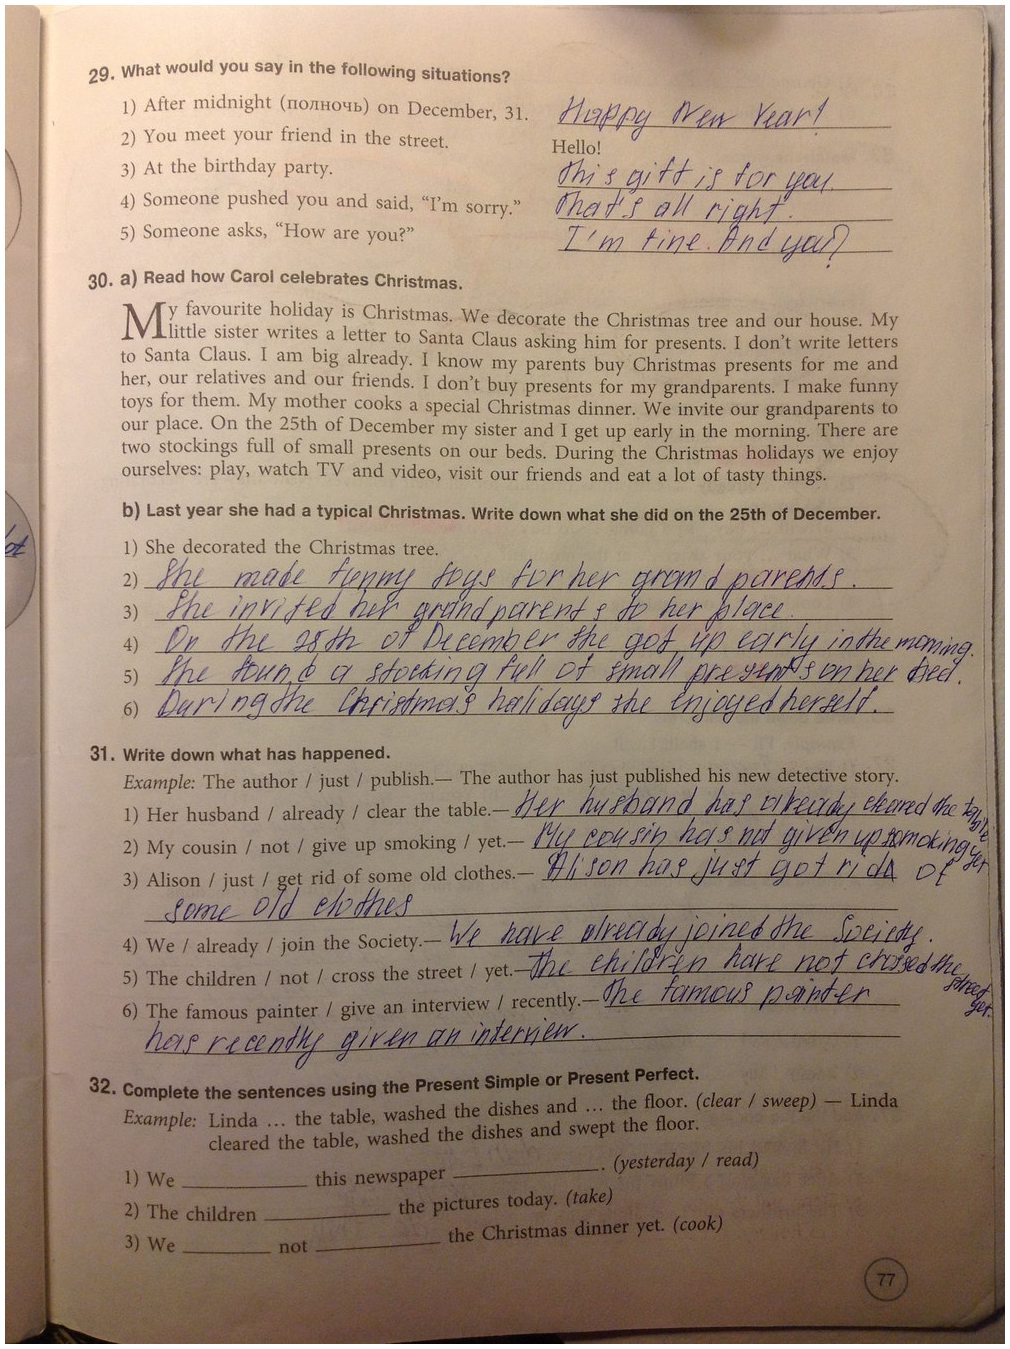 29. What would you say in the following situations?
1) After midnight (полночь) on December, 31. Happy New Year!
2) You meet your friend in the street. Hello!
3) At the birthday party. This gift is for you.
4) Someone pushed you and said, “I’m sorry.” That's all right.
5) Someone asks, “How are you?” I'm fine. And you?
30. a) Read how Carol celebrates Christmas.
My favourite holiday is Christmas. We decorate the Christmas tree and our house. My
little sister writes a letter to Santa Claus asking him for presents. I don’t write letters
to Santa Claus. I am big already. I know my parents buy Christmas presents for me and
her, our relatives and our friends. I don’t buy presents for my grandparents. I make funny
toys for them. My mother cooks a special Christmas dinner. We invite our grandparents to
our place. On the 25th of December my sister and I get up early in the morning. There are
two stockings full of small presents on our beds. During the Christmas holidays we enjoy
ourselves: play, watch TV and video, visit our friends and eat a lot of tasty things.
b) Last year she had a typical Christmas. Write down what she did on the 25th of December.
1) She decorated the Christmas tree.
2) She made funny toys for her grand parents.
3) She invited her grandparents to her place.
4) On the 25th of December she got up early in the morning.
5) She found a stocking full of small presents on her bed.
6) During the Christmas halidays she enjoyed herself.
31. Write down what has happened.
Example: The author / just / publish.— The author has just published his new detective story.
1) Her husband / already / clear the table.— Her husband has already cleared the table
2) My cousin / not / give up smoking / yet.— My cousin has not given up smoking yet
3) Alison / just / get rid of some old clothes.— Alison has just got rid of
some old clothes
4) We / already / join the Society.— We have already joined the Society.
5) The children / not / cross the street / yet.— The children have not crossed the street yet.
6) The famous painter / give an interview / recently.— The famous painter
has recently given an interview.
32. Complete the sentences using the Present Simple or Present Perfect.
Example: Linda ... the table, washed the dishes and ... the floor. (clear / sweep) — Linda
cleared the table, washed the dishes and swept the floor.
1) We ____________ this newspaper ______________. (yesterday / read)
2) The children ____________ the pictures today. (take)
3) We ________ not ____________ the Christmas dinner yet. (cook)
77